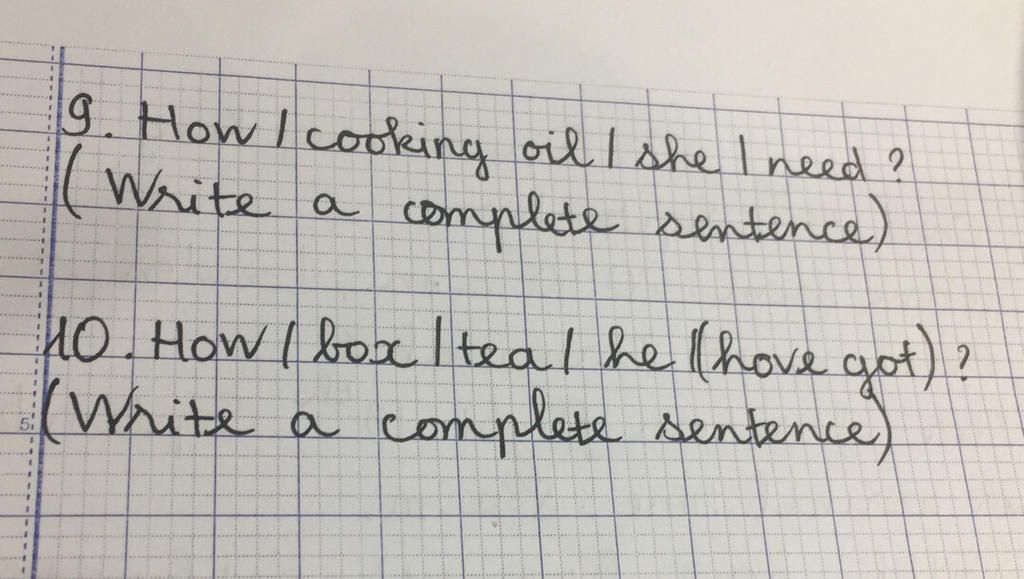 9. How / cooking oil / she / need ?
( Write a complete sentence)
10. How / box / tea / he / (have got) ?
5
(Write a complete sentence)